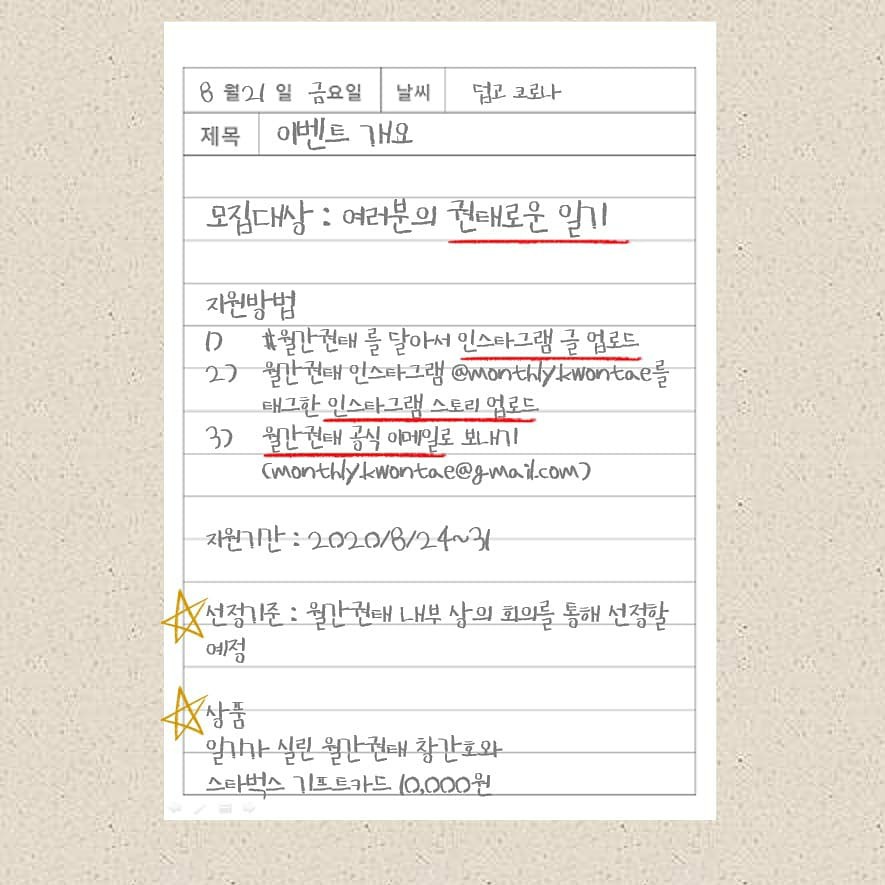 8 월 21 일 금요일 날씨 덥고 코로나
제목 이벤트 개요
모집대상 : 여러분의 권태로운 일기
지원방법
1) #월간권태 를 달아서 인스타그램 글 업로드
2) 월간권태 인스타그램 @monthly.kwontae를
태그한 인스타그램 스토리 업로드
3) 월간권태 공식 이메일로 보내기
(monthly.kwontae@gmail.com)
지원기간 : 2020/8/24~31
선정기준 : 월간권태 내부 상의 회의를 통해 선정할
예정
상품
일기가 실린 월간권태 창간호와
스타벅스 기프트카드 10,000원